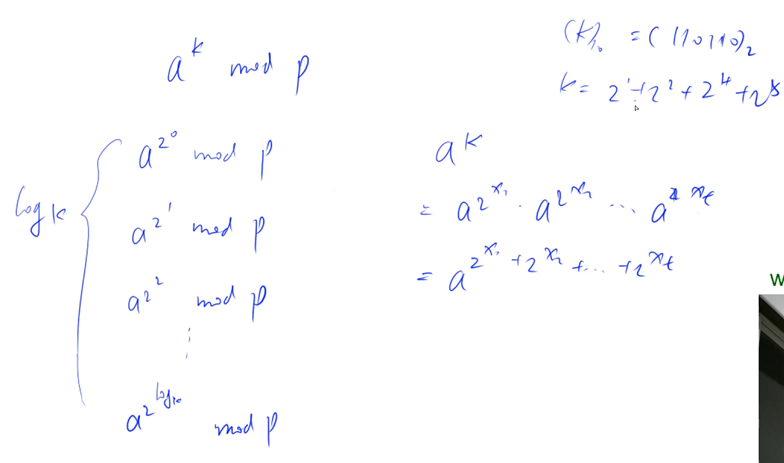 a^k mod p
(k)_10 = (110110)_2
k = 2^1 + 2^2 + 2^4 + 2^5
log k
a^{2^0} mod p
a^{2^1} mod p
a^{2^2} mod p
⋮
a^{2^{log k}} mod p
a^k
= a^{2^{x_1}} · a^{2^{x_2}} ... a^{2^{x_t}}
= a^{2^{x_1} + 2^{x_2} + ... + 2^{x_t}}